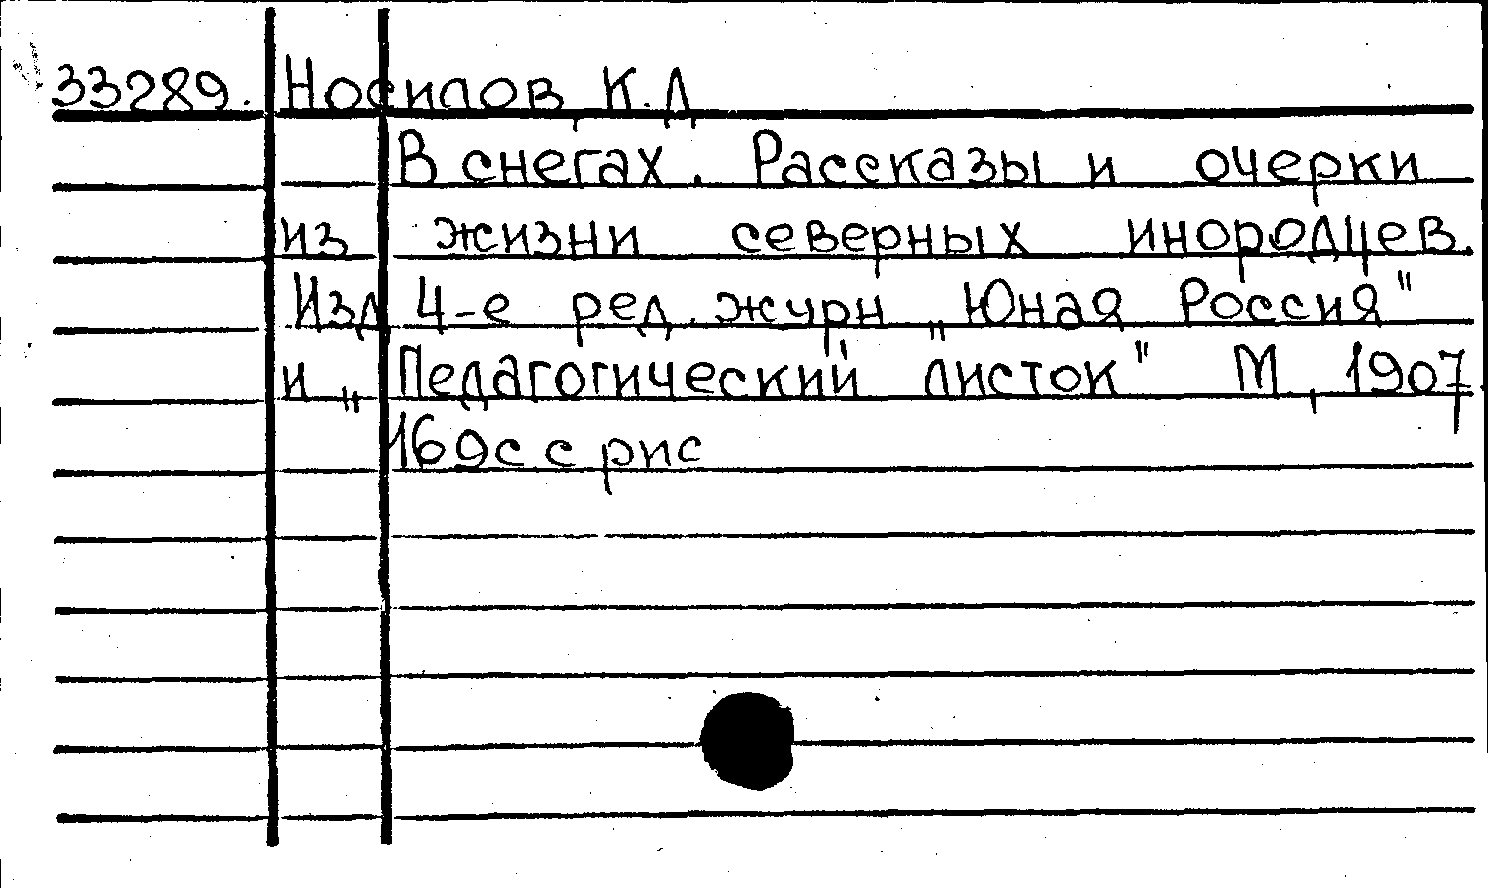 33289. Носилов, К. Д
В снегах. Рассказы и очерки
из жизни северных инородцев.
Изд 4-е ред. журн „Юная Россия"
и „Педагогический листок" М, 1907.
169с с рис